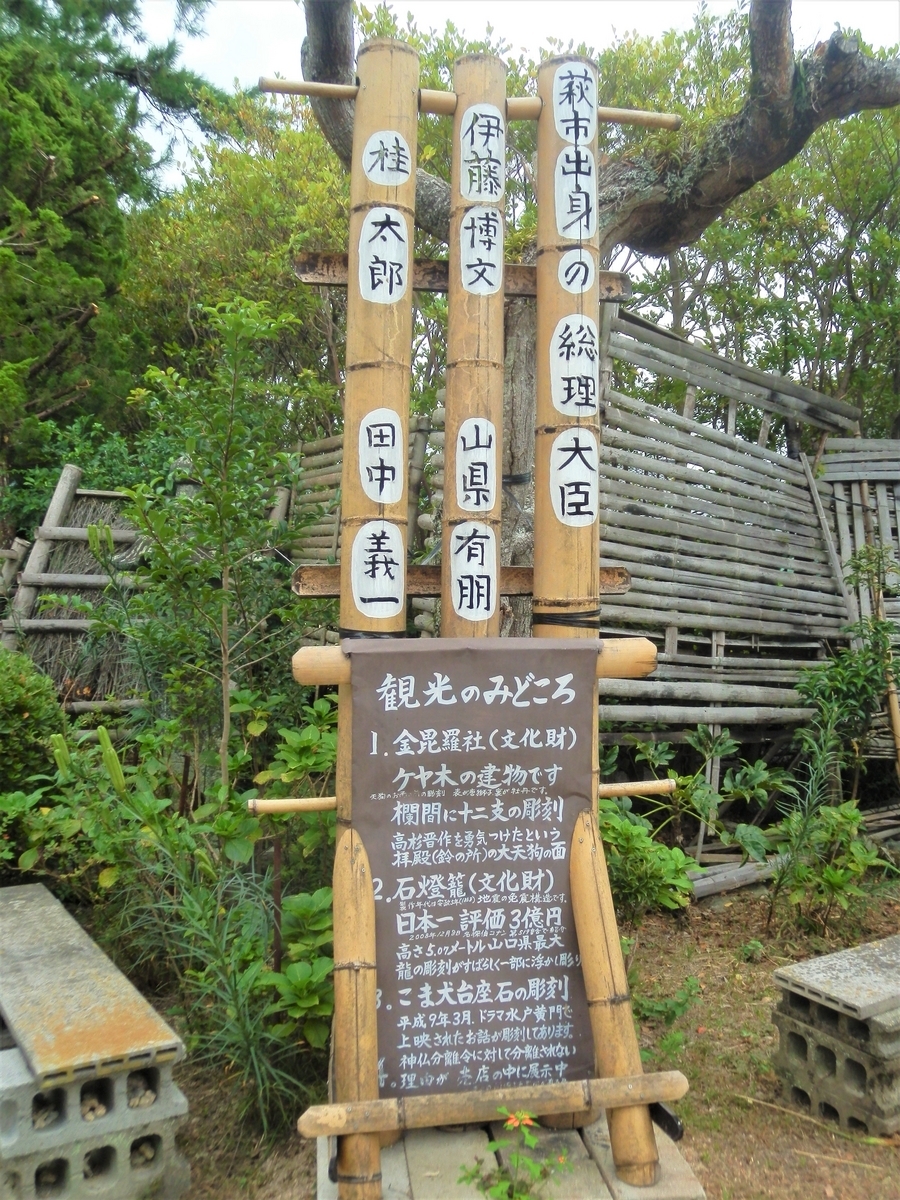 萩市出身の総理大臣
伊藤博文
山県有朋
桂太郎
田中義一
観光のみどころ
1.金毘羅社(文化財)
ケヤ木の建物です
欄間に十二支の彫刻
高杉晋作を勇気つけたという
拝殿(鈴の所)の大天狗の面
2.石燈籠(文化財)
地震の免震構造です。
日本一評価3億円
高さ5.07メートル山口県最大
龍の彫刻がすばらしく一部に浮かし彫り
3.こま犬台座石の彫刻
平成9年3月.ドラマ水戸黄門で
上映されたお話が彫刻してあります.
神仏分離令に対して分離されない
理由が売店の中に展示中